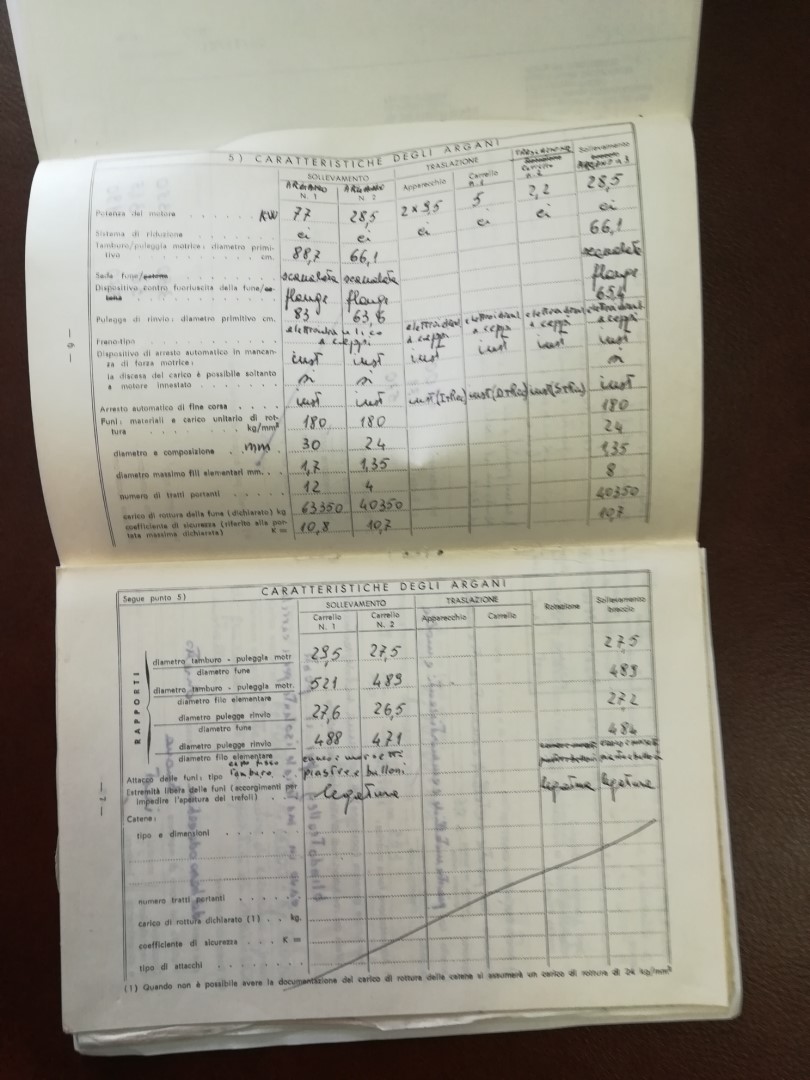 5) CARATTERISTICHE DEGLI ARGANI
SOLLEVAMENTO TRASLAZIONE Sollevamento
ARGANO N. 1 ARGANO N. 2 Apparecchio Carrello n.1 Carrello n.2 ARGANO n 3
Potenza del motore . . . . . . KW 77 28,5 2 x 9,5 5 2,2 28,5
Sistema di riduzione . . . . . . ci ci ci ci ci ci
Tamburo/puleggia motrice: diametro primitivo . . . . . cm. 88,7 66,1 66,1
Sede fune/catena . . . . . scanalata scanalata scanalata
Dispositivo contro fuoriuscita della fune/catena flange flange flange
Puleggia di rinvio: diametro primitivo cm. 83 63,6 65,4
Freno-tipo . . . . . elettroidraulico a ceppi elettroidraul a ceppi elettroidraul a ceppi elettroidraul a ceppi elettroidraul a ceppi
Dispositivo di arresto automatico in mancanza di forza motrice: inst inst inst inst inst inst
la discesa del carico è possibile soltanto a motore innestato . . . . si si si
Arresto automatico di fine corsa . . . . inst inst inst
Funi: materiali e carico unitario di rottura . . . . . kg/mm² 180 180 180
diametro e composizione . . mm 30 24 24
diametro massimo fili elementari mm. . . 1,7 1,35 1,35
numero di tratti portanti . . . . . 12 4 8
carico di rottura della fune (dichiarato) kg 63350 40350 40350
coefficiente di sicurezza (riferito alla portata massima dichiarata) K = 10,8 10,7 10,7
— 6 —
Segue punto 5) CARATTERISTICHE DEGLI ARGANI
SOLLEVAMENTO TRASLAZIONE Rotazione Sollevamento braccio
Carrello N. 1 Carrello N. 2 Apparecchio Carrello
RAPPORTI
diametro tamburo - puleggia motr. 29,5 27,5 27,5
diametro fune
diametro tamburo - puleggia motr. 521 489 489
diametro filo elementare
diametro pulegge rinvio 27,6 26,5 27,2
diametro fune
diametro pulegge rinvio 488 471 484
diametro filo elementare
Attacco delle funi: tipo capo fisso cuneo e morsetti
Tamburo. piastre e bulloni
Estremità libere delle funi (accorgimenti per impedire l'apertura dei trefoli) . . legatura legatura legatura
Catene:
tipo e dimensioni . . . . . .
numero tratti portanti . . . . .
carico di rottura dichiarato (1) . . kg.
coefficiente di sicurezza . . K =
tipo di attacchi . . . . . . .
(1) Quando non è possibile avere la documentazione del carico di rottura delle catene si assumerà un carico di rottura di 24 kg/mm²
— 7 —